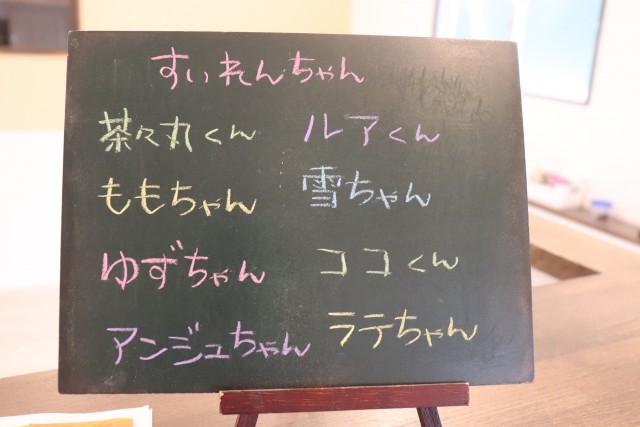 すいれんちゃん
茶々丸くん ルアくん
ももちゃん 雪ちゃん
ゆずちゃん ココくん
アンジュちゃん ラテちゃん